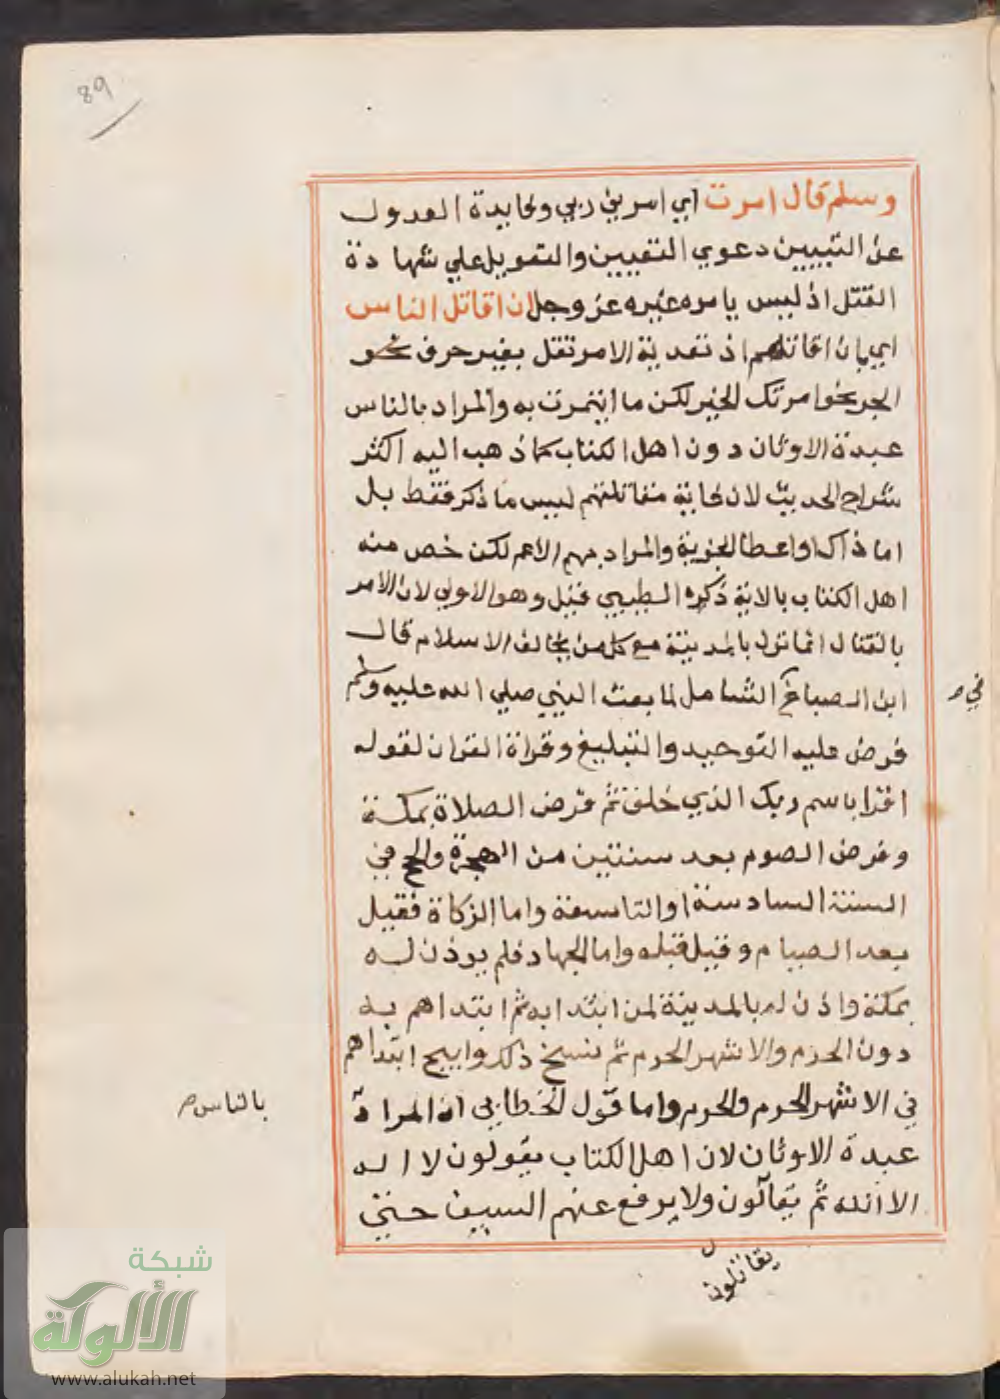 89
وسلم قال امرت اي امرني ربي وفايدة العدول
عن التبيين دعوي التعيين والتعويل علي شهادة
العقل اذ ليس يامره غيره عز وجل ان اقاتل الناس
اي بان اقاتلهم اذ تعدية الامر تقل بغير حرف نحو
الجر نحو امرتك الخير لكن ما ايتمرت به والمراد بالناس
عبدة الاوثان دون اهل الكتاب كما ذهب اليه اكثر
شراح الحديث لان غاية مقاتلتهم ليس ما ذكر فقط بل
اما ذاك او اعطا الجزية والمراد بهم الاعم لكن خص منه
اهل الكتاب بالاية ذكره الطيبي قيل وهو الاولي لان الامر
بالقتال انما نزل بالمدينة مع كل من يخالف الاسلام قال
ابن الصباغ الشامل لما بعث النبي صلي الله عليه وسلم
في
فرض عليه التوحيد والتبليغ وقراة القران لقوله
اقرا باسم ربك الذي خلق ثم فرض الصلاة بمكة
وفرض الصوم بعد سنتين من الهجرة والحج في
السنة السادسة او التاسعة واما الزكاة فقيل
بعد الصيام وقيل قبله واما الجهاد فلم يوذن له
بمكة واذن له بالمدينة لمن ابتدا به ثم ابتداهم به
دون الحرم والاشهر الحرم ثم نسخ ذلك وابيح ابتداهم
في الاشهر الحرم والحرم واما قول الخطابي ان المراد
بالناس
عبدة الاوثان لان اهل الكتاب يقولون لا اله
الا الله ثم يقاتلون ولا يرفع عنهم السيف حتي
يقاتلون
شبكة
الألوكة
www.alukah.net